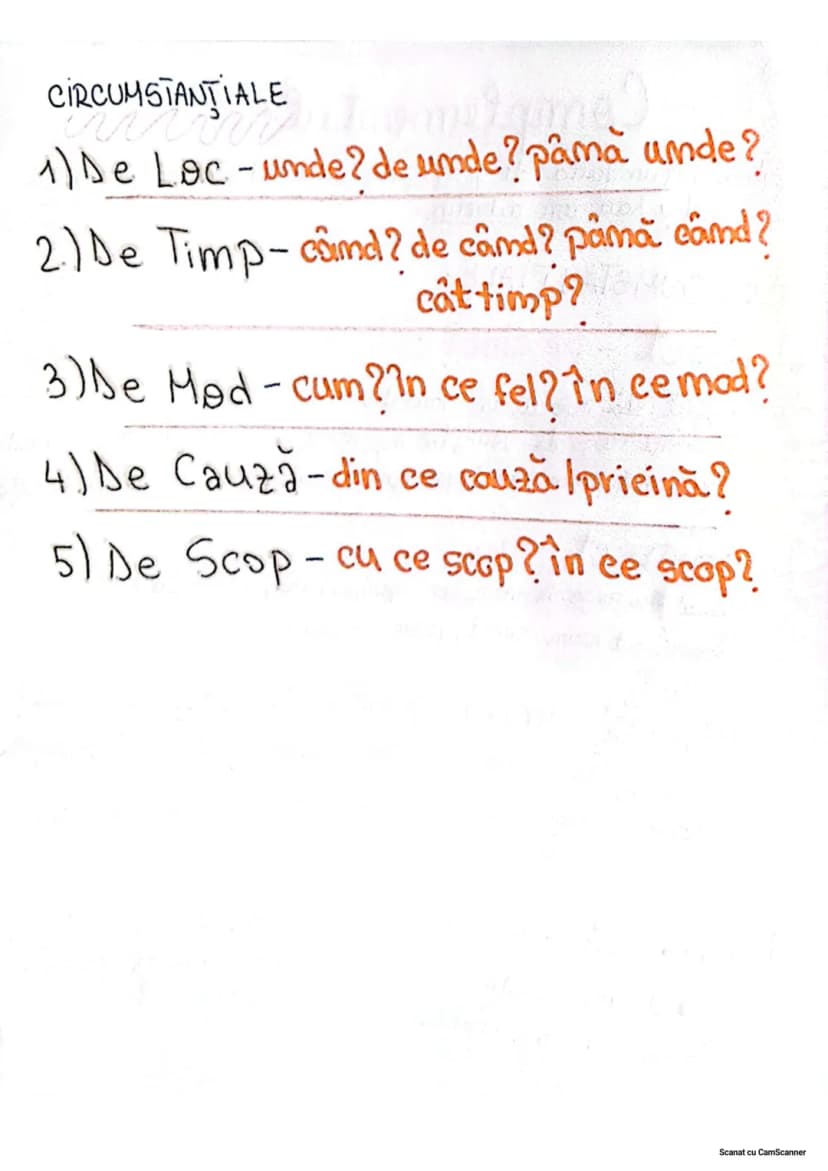 CIRCUMSTANȚIALE
1) De Loc - unde? de unde? până unde?
2.) De Timp - când? de când? până când?
cât timp?
3) De Mod - cum? În ce fel? în ce mod?
4) De Cauză - din ce cauză / pricină?
5) De Scop - cu ce scop? în ce scop?
Scanat cu CamScanner